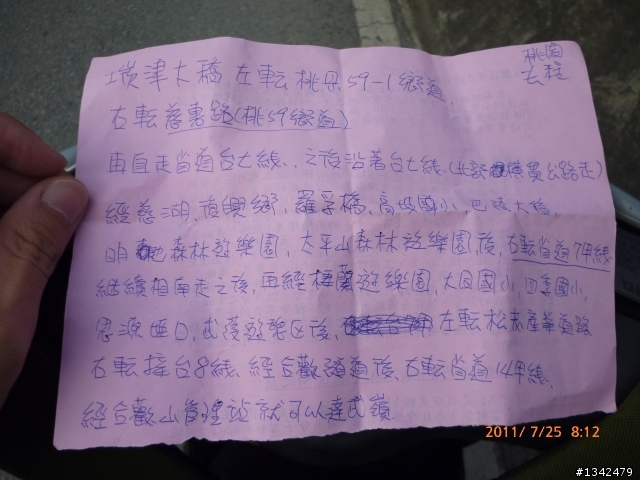 桃園
左轉
埔津大橋左転桃县59-1鄉道
右転慈惠路(桃59鄉道)
再直走省道台七線、之後沿著台七線(北橫公路走)
經慈湖、復興鄉、羅孚橋、高坡國小、巴陵大橋、
明池森林遊樂園、太平山森林遊樂園後、右転省道7甲線
繼續相南走之後、再經棲蘭遊樂園、大同國小、四季國小、
思源啞口、武陵遊樂区後、左転松茂產業道路
右転接台8線、經合歡頂道後、右転省道14甲線、
經合歡山管理站就可以達武嶺
2011/ 7/25 8:12
#1342479